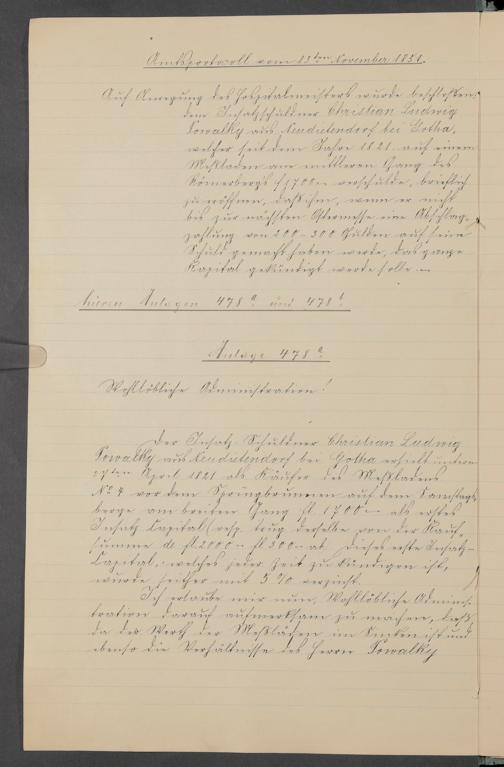 Amtsprotocoll vom 13ten November 1851.
Auf Anregung des Hospitalmeisters wurde beschlossen,
dem Insatzschuldner Christian Ludwig
Kowalky aus Neudietendorf bei Gotha,
welcher seit dem Jahre 1821 auf einem
Meßladen am mittleren Gang des
Römerbergs f 1700 verschulde, brieflich
zu eröffnen, daß ihm, wenn er nicht
bis zur nächsten Ostermesse eine Abschlags-
zahlung von 200-300 Gulden auf seine
Schuld gemacht haben werde, das ganze
Kapital gekündigt werde solle.
hierzu Anlagen 478a und 478b.
Anlage 478a
Wohllöbliche Administration!
Der Insatz-Schuldner Christian Ludwig
Kowalky aus Neudietendorf bei Gotha erhielt unterm
April 1821 als Käufer des Meßladens
No 4 vor dem Springbrunnen auf dem Samstags-
berge am breiten Gang fl 1700 als erstes
Insatz-Capital, resp. trug derselbe von der Kauf-
summe de fl 2000 fl 300 ab. Dieses erste Insatz-
Capital, welches jeder Zeit zu kündigen ist,
wurde seither mit 5% verzinst.
Ich erlaube mir nun, Wohllöbliche Adminis-
tration darauf aufmerksam zu machen, daß,
da der Werth der Meßläden im Sinken ist und
ebenso die Verhältnisse des Herrn Kowalky